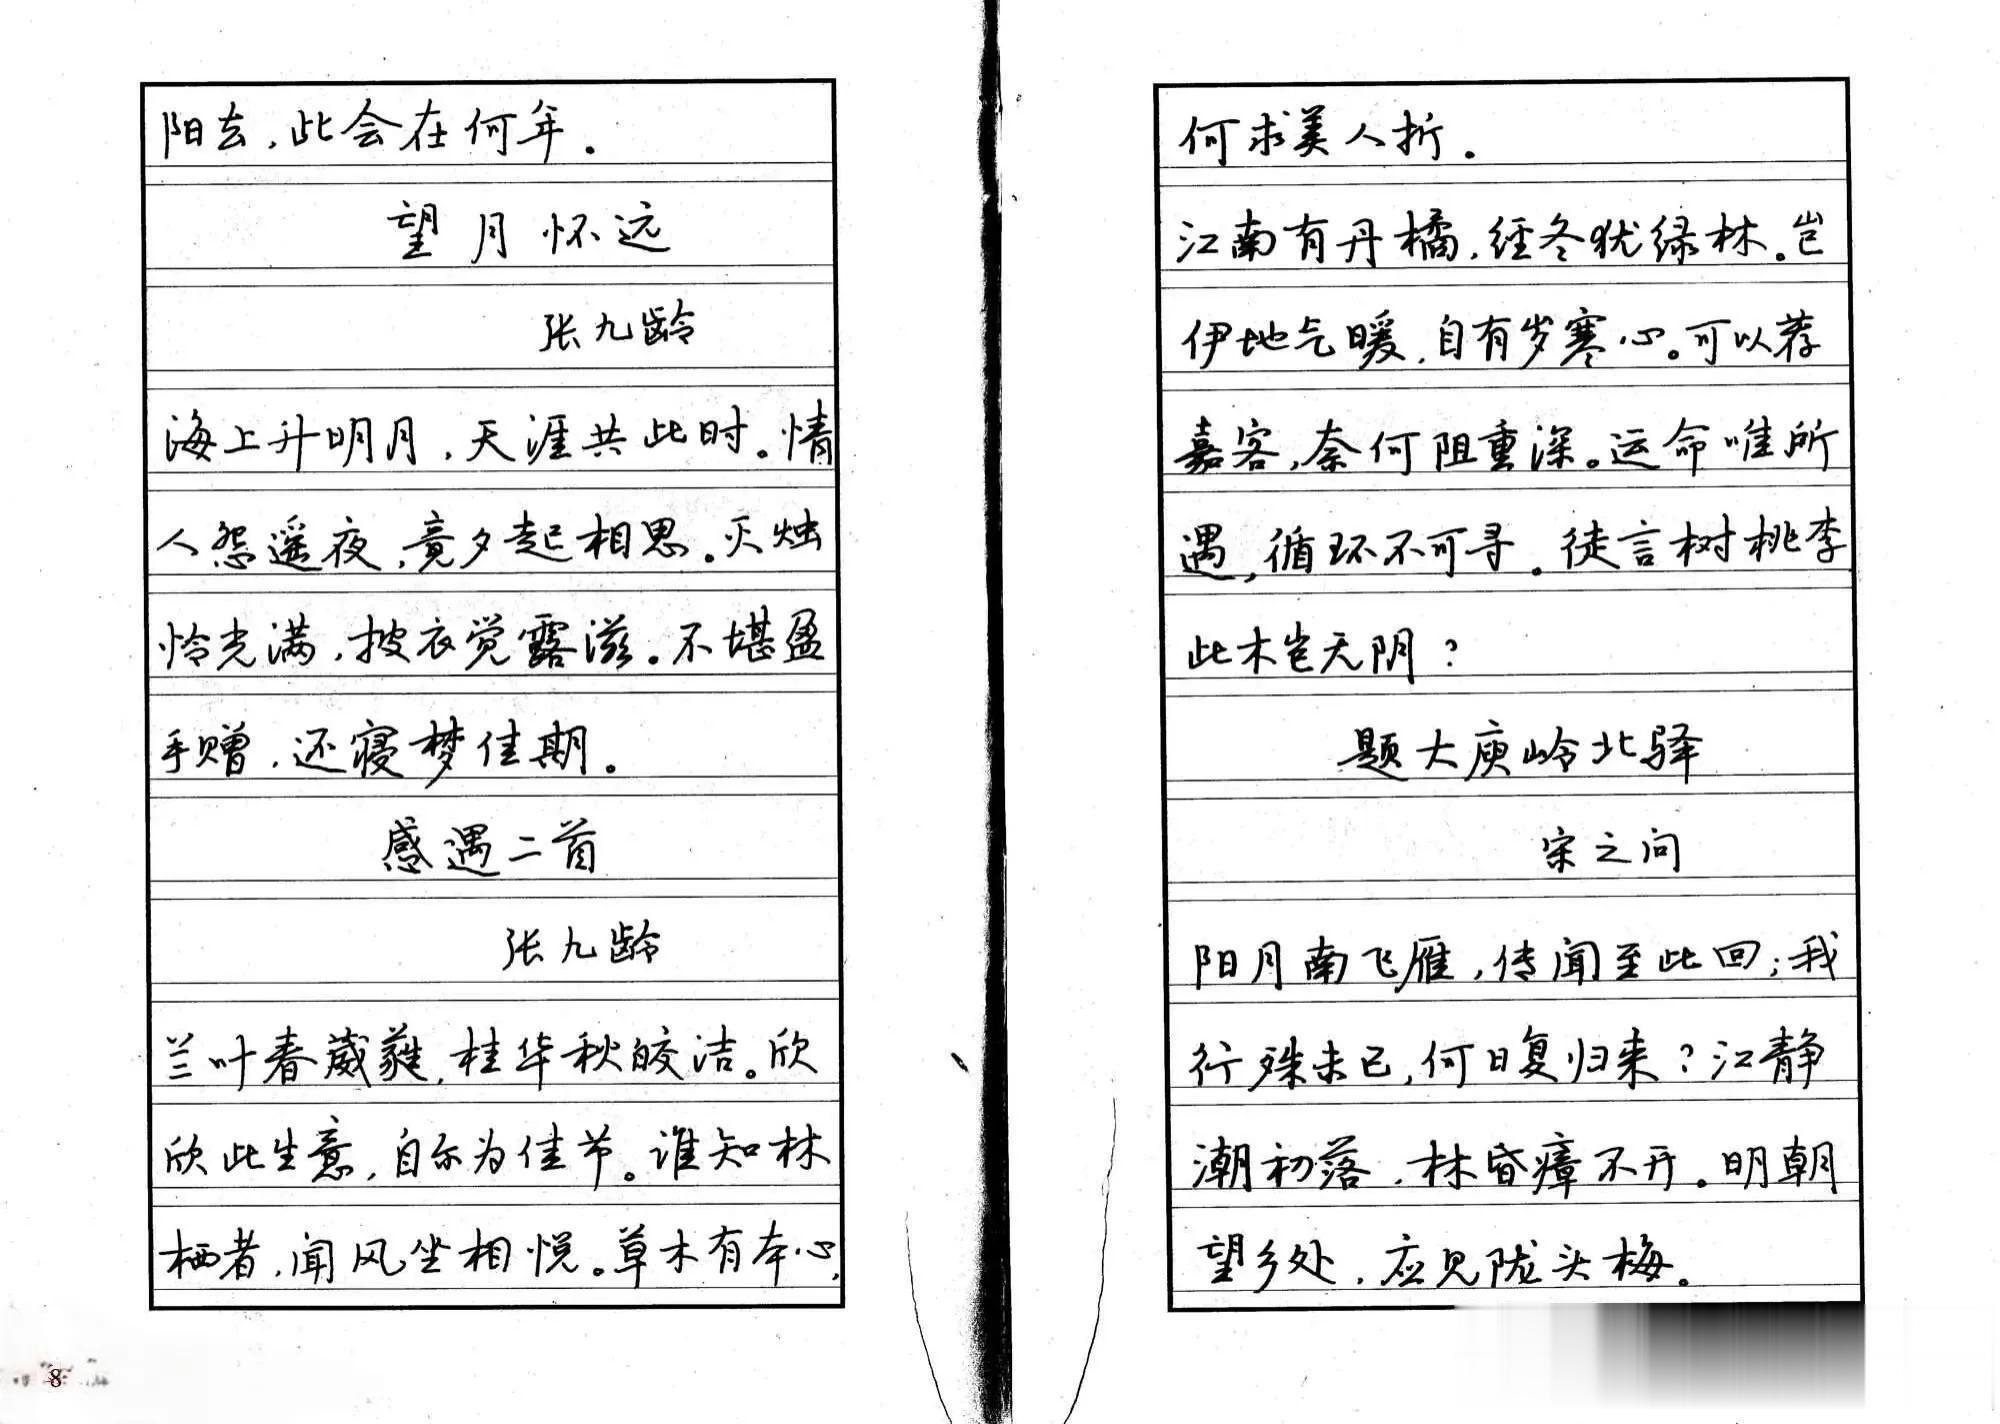 阳去，此会在何年。
望月怀远
张九龄
海上升明月，天涯共此时。情
人怨遥夜，竟夕起相思。灭烛
怜光满，披衣觉露滋。不堪盈
手赠，还寝梦佳期。
感遇二首
张九龄
兰叶春葳蕤，桂华秋皎洁。欣
欣此生意，自尔为佳节。谁知林
栖者，闻风坐相悦。草木有本心，
8
何求美人折。
江南有丹橘，经冬犹绿林。岂
伊地气暖，自有岁寒心。可以荐
嘉客，奈何阻重深。运命唯所
遇，循环不可寻。徒言树桃李
此木岂无阴？
题大庾岭北驿
宋之问
阳月南飞雁，传闻至此回；我
行殊未已，何日复归来？江静
潮初落，林昏瘴不开。明朝
望乡处，应见陇头梅。